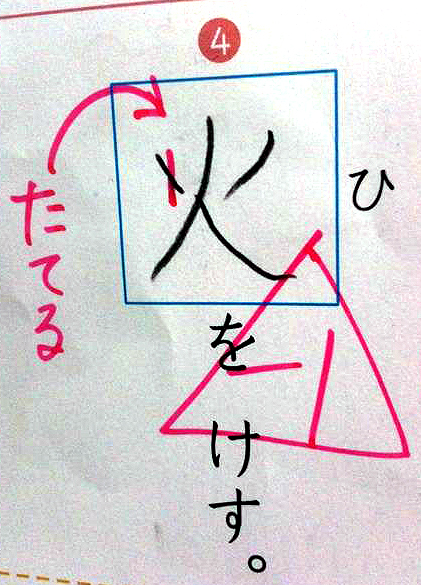 4
火をけす。
ひ
たてる